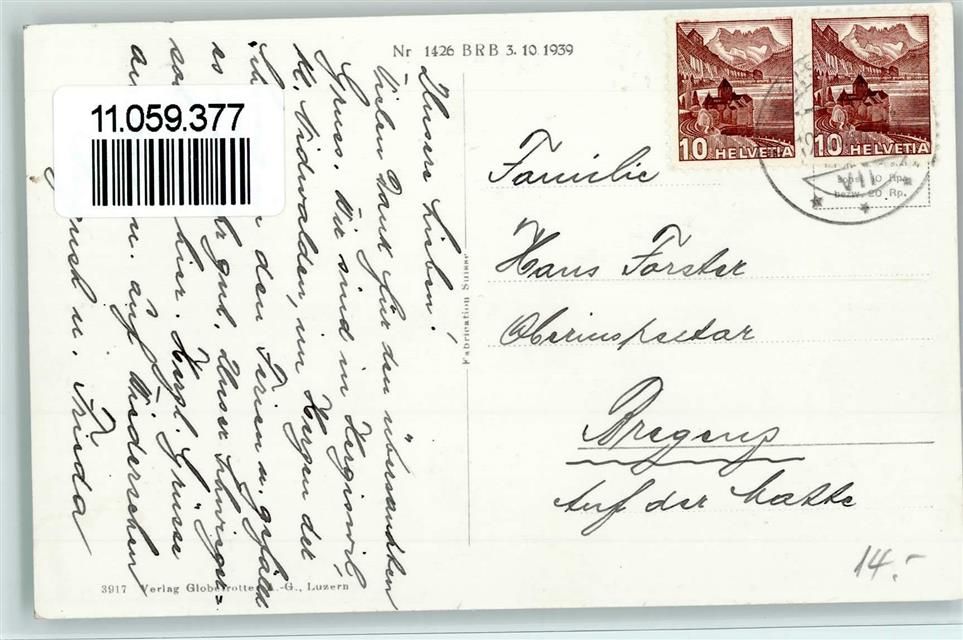 Nr 1426 BRB 3. 10. 1939
Unsere Lieben!
Vielen Dank für den übersandten
Gruss. Wir sind in Hergiswil,
Kt. Nidwalden, im Herzen der
den Ferien u. gefällt
es gut. Unser Schwieger-
hier. Herzl. Grüsse
u. auf Wiedersehen
u. Frieda
11.059.377
Fabrication Suisse
3917 Verlag Globetrotter A.-G., Luzern
10 HELVETIA
10 HELVETIA
VII
10 Rp.
bezw. 20 Rp.
Familie
Hans Forster
Oberinspektor
Bregenz
Auf der Matte
14.-